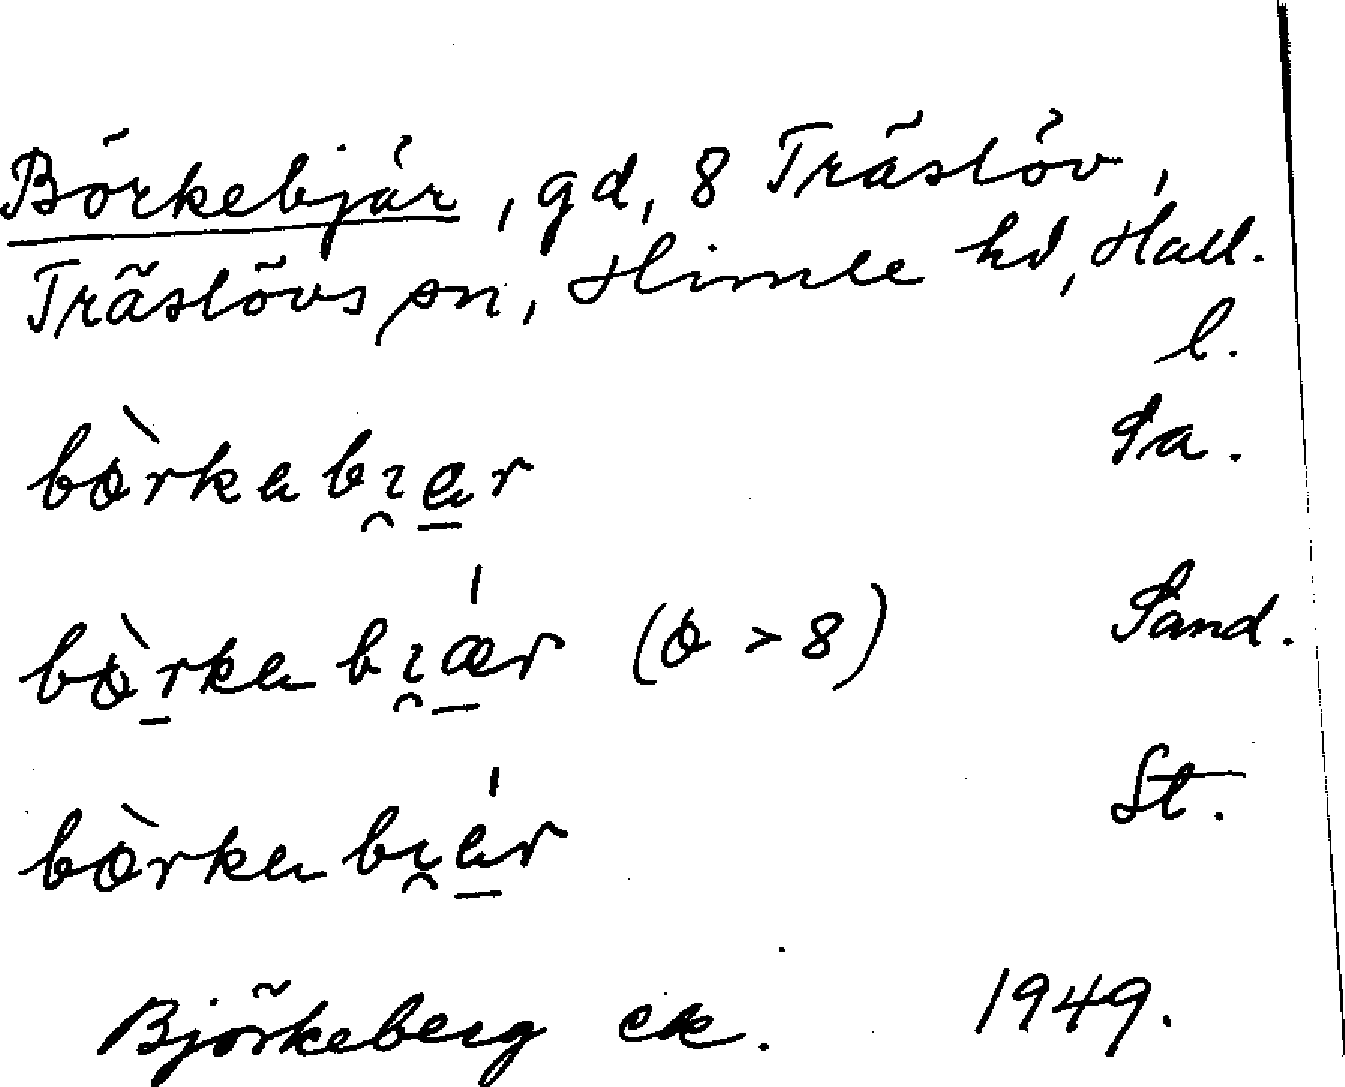 Börkebjär, gd, 8 Träslöv,
Träslövs sn, Himle hd, Hall.
l.
bòrkabı̯a̱r Sa.
bòṟkabı̯ǽ̱r (ò > 8) Sand.
bòrkabı̯á̱r St.
Björkeberg ek. 1949.